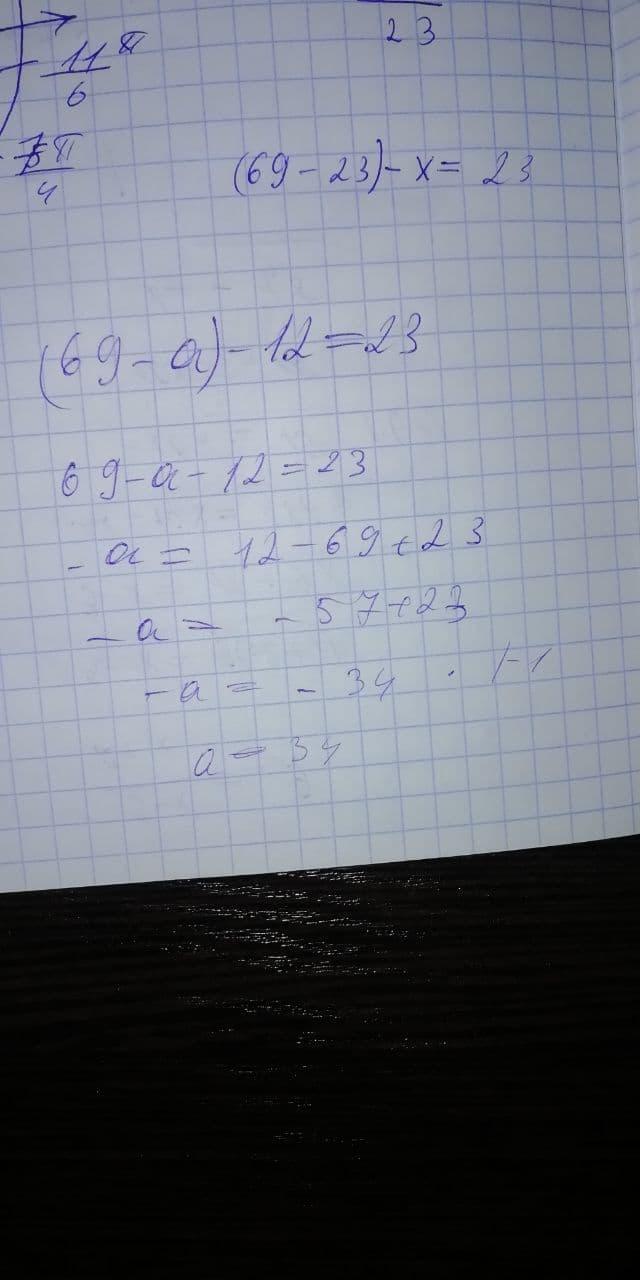 23
11π
6
7π
4
(69-23)-x= 23
(69-a)-12=23
69-a-12=23
-a= 12-69+23
-a= -57+23
-a= -34 · |-1
a=34